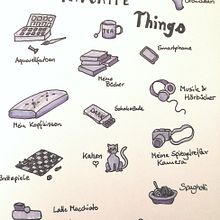 FAVORITE
Things
TEA
Smartphone
Aquarellfarben
Meine
Bücher
Musik &
Hörbücher
Schokolade
Mein Kopfkissen
Katzen
Meine Spiegelreflex
Kamera
Brettspiele
Spaghetti
Latte Macchiato